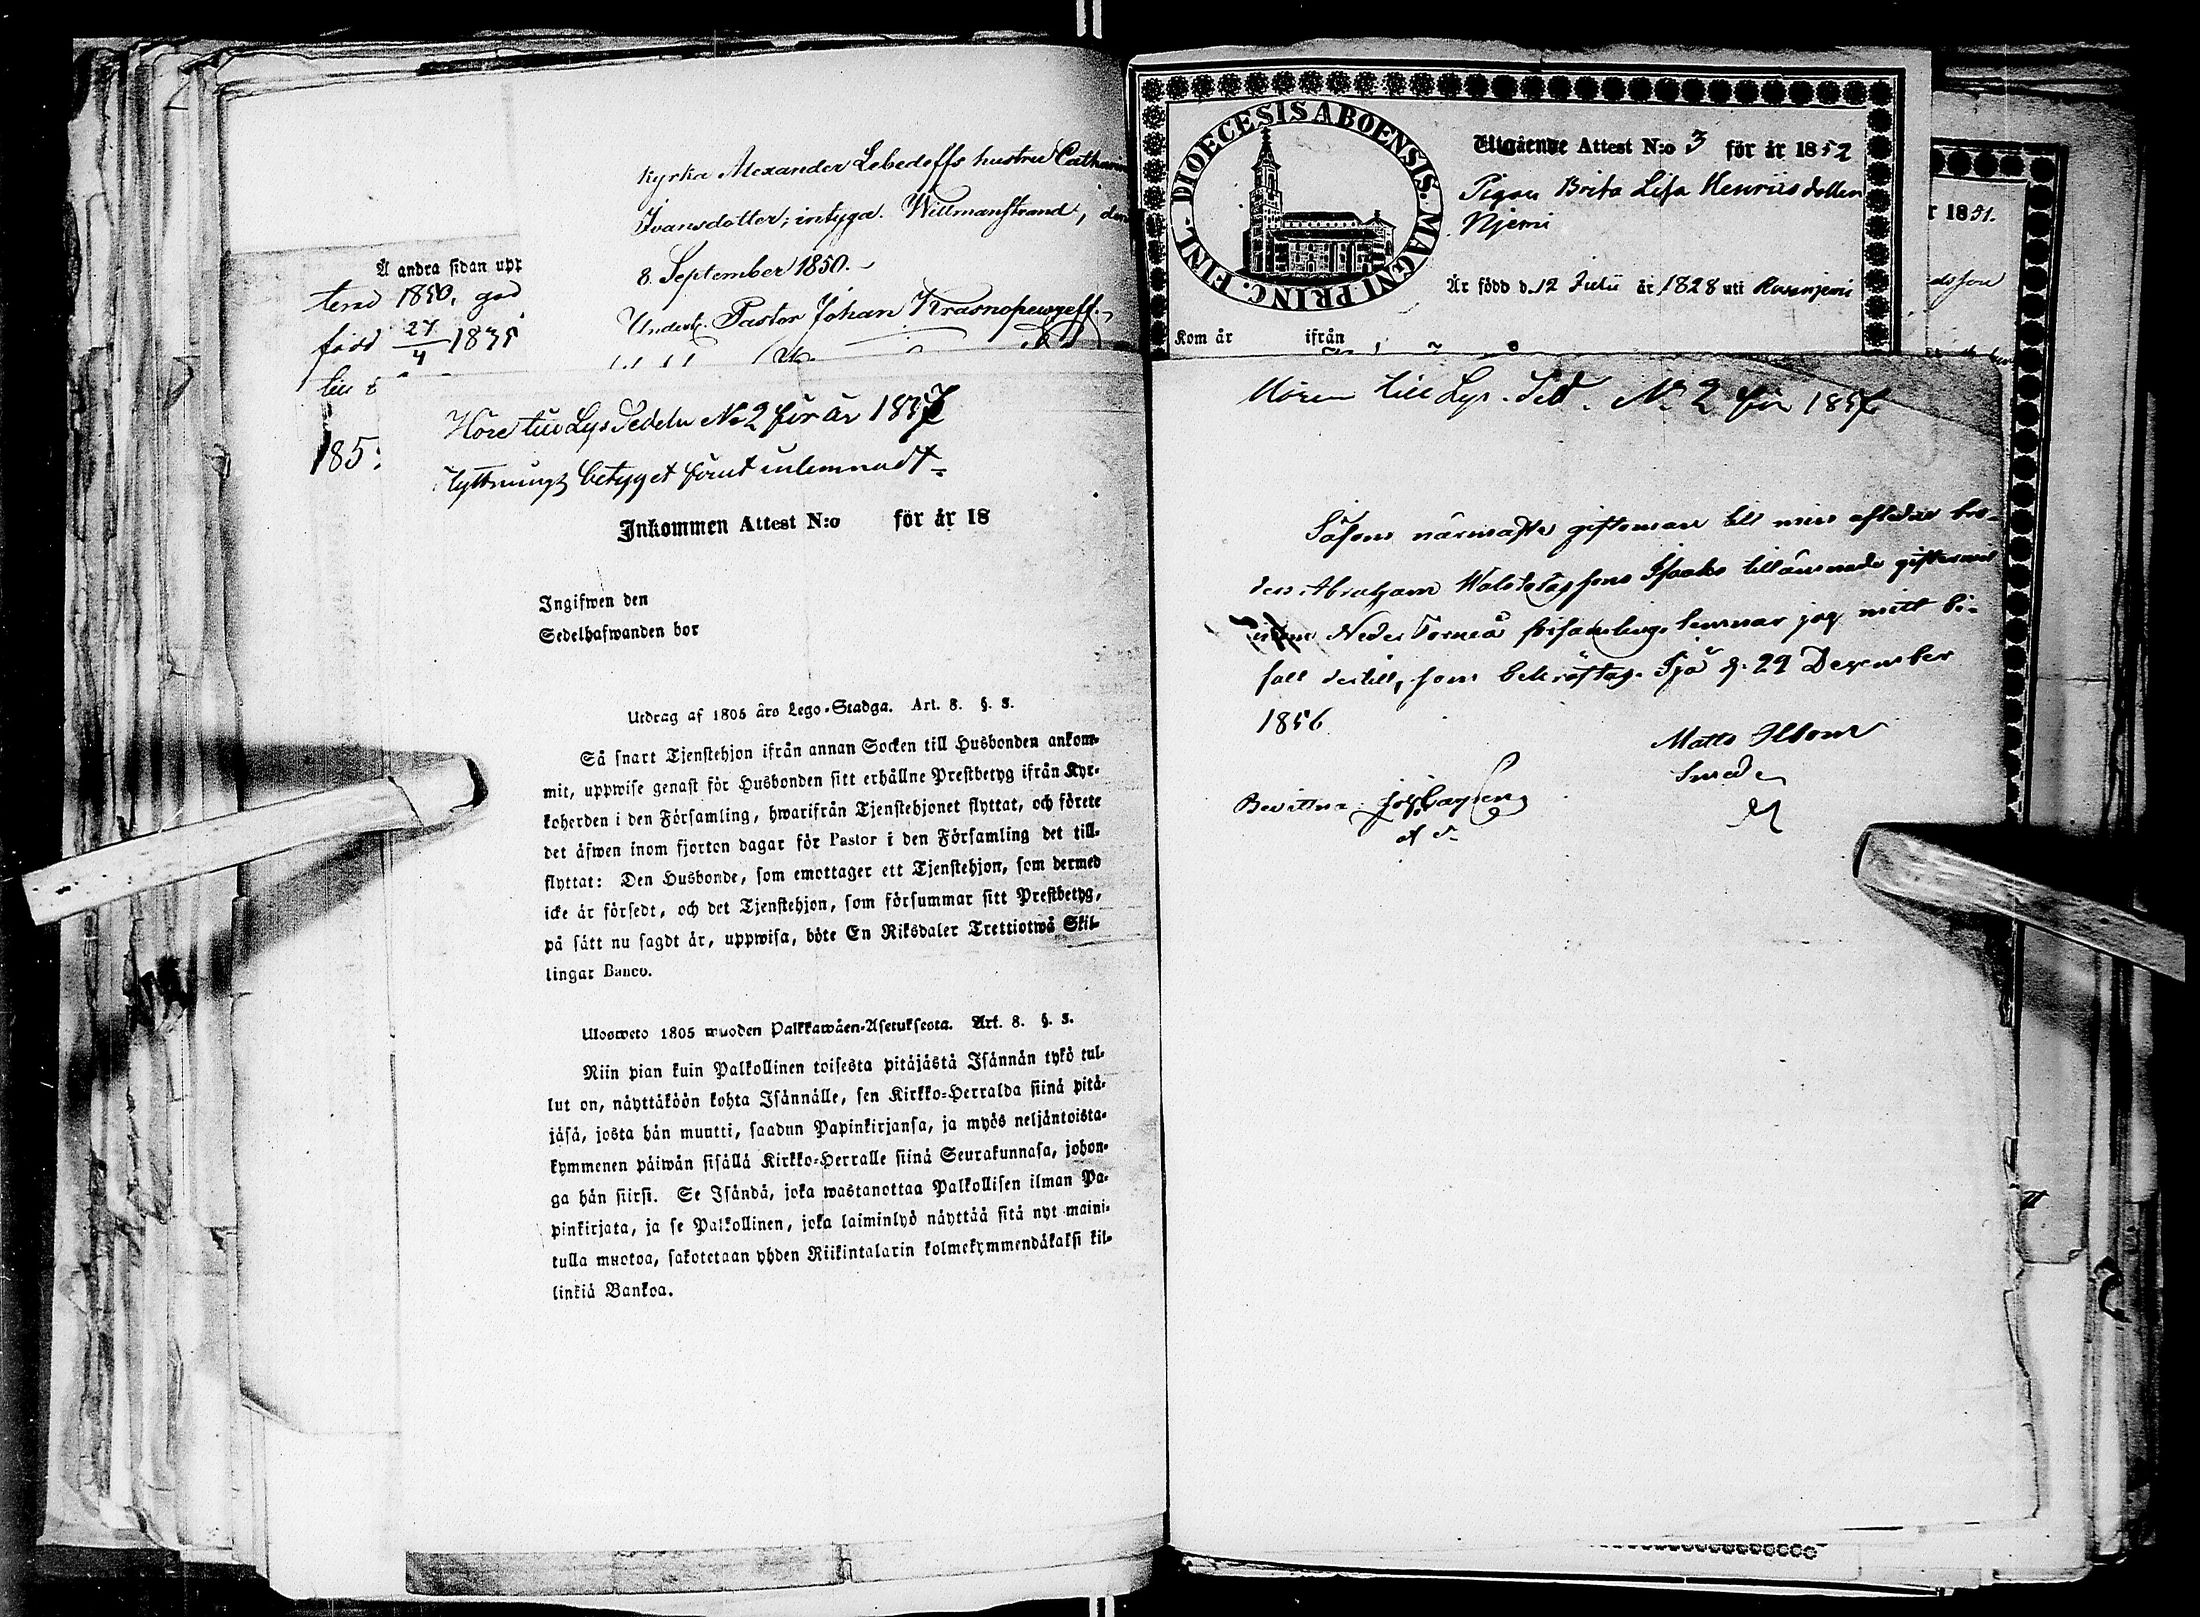 kyrka Alexander Lebedeffs hustru
Ivansdotter, intyga. Willmanstrand, den
8 September 1850.
Underst. Pastor Johan
Å andra sidan upp
1850, god
född 27/4 1835
till
185
Höre till Lys Sedeln No 2 för år 1857
flyttnings betyget förut inlemnadt
Inkommen Attest N:o för år 18
Ingifwen den
Sedelhafwanden bor
Utdrag af 1805 års Lego-Stadga. Art. 8. §. 3.
Så snart Tjenstehjon ifrån annan Socken till Husbonden ankom-
mit, uppwise genast för Husbonden sitt erhållne Prestbetyg ifrån Kyr-
koherden i den Församling, hwarifrån Tjenstehjonet flyttat, och förete
det äfwen inom fjorton dagar för Pastor i den Församling det till-
flyttat: Den Husbonde, som emottager ett Tjenstehjon, som dermed
icke är försedt, och det Tjenstehjon, som försummar sitt Prestbetyg,
på sätt nu sagdt är, uppwisa, böte En Riksdaler Trettiotwå Skil-
lingar Banco.
Ulosweto 1805 wuoden Palkkawäen-Asetuksesta. Art. 8. §. 3.
Niin pian kuin Palkollinen toisesta pitäjästä Isännän tykö tul-
lut on, näyttäköön kohta Isännälle, sen Kirkko-Herralda siinä pitä-
jäsä, josta hän muutti, saadun Papinkirjansa, ja myös neljäntoista-
kymmenen päiwän sisällä Kirkko-Herralle siinä Seurakunnasa, johon-
ga hän siirsi. Se Isändä, joka wastanottaa Palkollisen ilman Pa-
pinkirjata, ja se Palkollinen, joka laiminlyö näyttää sitä nyt maini-
tulla muotoa, sakotetaan yhden Riikintalarin kolmekymmendäkaksi kil-
linkiä Bankoa.
DIOECESIS ABOENSIS. MAGNI PRINC. FINL.
Utgående Attest N:o 3 för år 1852
Pigan Brita Lisa Henriksdotter
Njemi
Är född d. 12 Julii år 1828 uti
Kom år ifrån
r 1851.
Hörer till Lys. Sed. No 2 för 1857
Såsom närmaste giftoman till min aflidne bro-
ders Abraham sons Isaks tillämnade giftermål
Neder Torneå församling lemnar jag mitt bi-
fall dertill, som bekräftas. d. 29 December
1856
Matts
Bevittna